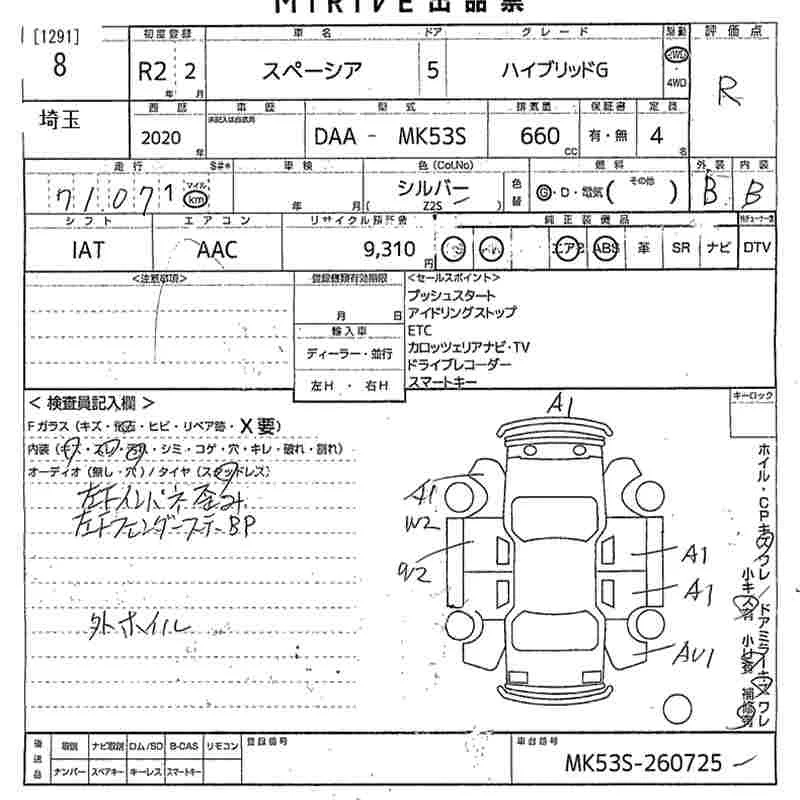 MIRIVE 出品票
[1291] 初度登録 車名 ドア グレード 駆動 評価点
8 R2 2 スペーシア 5 ハイブリッドG 2WD R
年 月 4WD
埼玉 西暦 車歴 型式 排気量 保証書 定員
2020 DAA - MK53S 660 有・無 4
年 CC 名
走行 S#* 車検 色(Col.No) 燃料 外装 内装
71071 マイル km 年 月 シルバー 色替 G・D・電気 (その他) B B
( Z2S )
シフト エアコン リサイクル預託金 純正装備品
IAT AAC 9,310 円 エアB ABS 革 SR ナビ DTV
<注意事項> 登録書類有効期限 <セールスポイント>
月 日 プッシュスタート
アイドリングストップ
輸入車 ETC
ディーラー・並行 カロッツェリアナビ・TV
ドライブレコーダー
左H ・ 右H スマートキー
< 検査員記入欄 > キーロック
Fガラス (キズ・飛石・ヒビ・リペア跡・X要)
内装 (キズ・スレ・汚れ・シミ・コゲ・穴・キレ・破れ・割れ)
オーディオ (無し・穴) / タイヤ (スタッドレス)
左Fインパネ歪み
左FフェンダーステーBP
外ホイル
A1
A1
W2
W2
A1
A1
AU1
ホイル・CPキズワレ / ドアミラーキズワレ
小キズ有 小凹有 補修有
後送品 取説 ナビ取説 ロム/SD B-CAS リモコン 登録番号 車台番号
ナンバー スペアキー キーレス スマートキー MK53S-260725